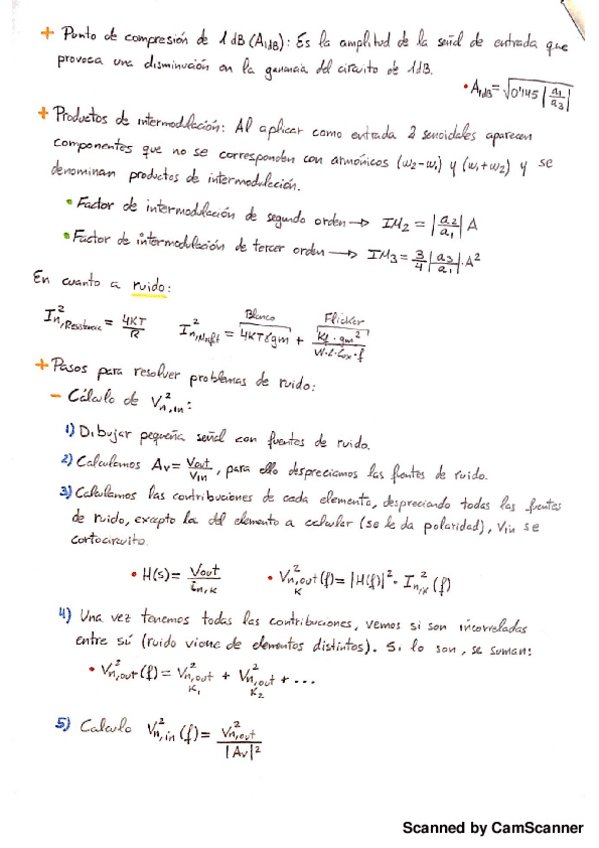 + Punto de compresión de 1dB (A1dB): Es la amplitud de la señal de entrada que
provoca una disminución en la ganancia del circuito de 1dB.
• A1dB = √0'145 |a1/a3|
+ Productos de intermodulación: Al aplicar como entrada 2 senoidales aparecen
componentes que no se corresponden con armónicos (w2-w1) y (w1+w2) y se
denominan productos de intermodulación.
• Factor de intermodulación de segundo orden → IM2 = |a2/a1| A
• Factor de intermodulación de tercer orden → IM3 = 3/4 |a3/a1|·A²
En cuanto a ruido:
Blanco Flicker
I²n,Resistencia = 4KT/R I²n,Mosft = 4KTγgm + Kf·gm²/W·L·Cox·f
+ Pasos para resolver problemas de ruido:
- Cálculo de V²n,in:
1) Dibujar pequeña señal con fuentes de ruido.
2) Calculamos Av = Vout/Vin, para ello despreciamos las fuentes de ruido.
3) Calculamos las contribuciones de cada elemento, despreciando todas las fuentes
de ruido, excepto la del elemento a calcular (se le da polaridad), Vin se
cortocircuito.
• H(s) = Vout/in,K • V²n,out K (f) = |H(f)|² · I²n,K (f)
4) Una vez tenemos todas las contribuciones, vemos si son incorreladas
entre sí (ruido viene de elementos distintos). Si lo son, se suman:
• V²n,out (f) = V²n,out K1 + V²n,out K2 + ...
5) Calculo V²n,in (f) = V²n,out/|Av|²
Scanned by CamScanner